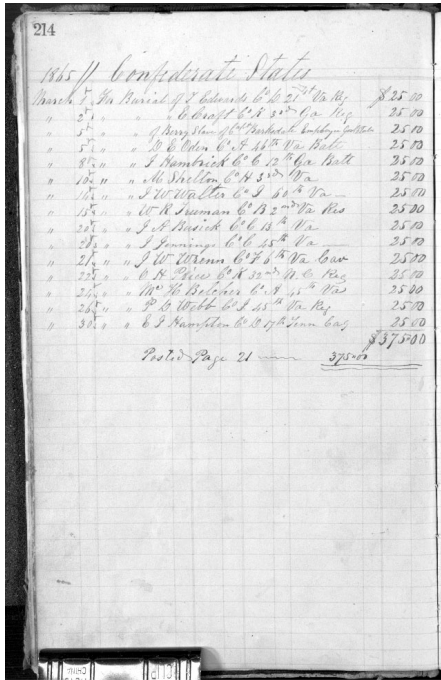 214
1865 // Confederate States
March 1st For Burial of T Edwards Co D 21st Va Reg $25 00
" 2d " " " C Croft Co K 3rd Ga Reg 25 00
" 5th " " of Berry Slave of Barksdale 25 00
" 5th " " D E Oden Co A 46th Va Batt 25 00
" 8th " " J Hambrick Co C 12th Ga Batt 25 00
" 10th " " M Shelton Co H 3rd Va 25 00
" 16th " " J W Walter Co I 60th Va 25 00
" 18th " " W R Truman Co B 2nd Va Res 25 00
" 20th " " J A Basick Co C 13th Va 25 00
" 20th " " J Jennings Co G 45th Va 25 00
" 21st " " J W Wrenn Co F 6th Va Cav 25 00
" 22d " " C H Price Co K 32nd N.C. Reg 25 00
" 24th " " Wm H Belcher Co A 45th Va 25 00
" 26th " " P D Webb Co I 45th Va Reg 25 00
" 30th " " E J Hampton Co D 17th Tenn Reg 25 00
$375.00
Posted Page 21 375.00
CLIP